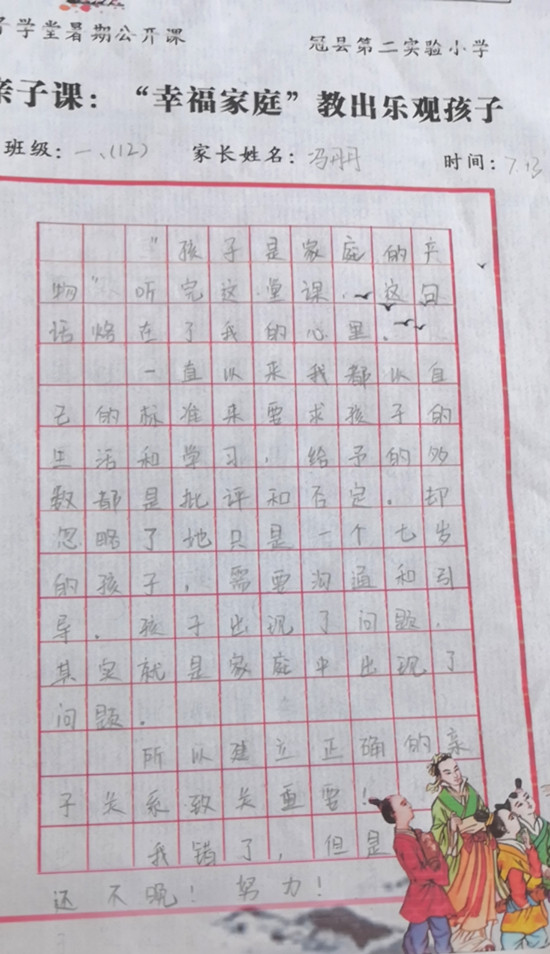 学堂暑期公开课 冠县第二实验小学
亲子课：“幸福家庭”教出乐观孩子
班级：一、（12） 家长姓名：冯丹丹 时间：7.13
“孩子是家庭的产
物”听完这堂课，这句
话烙在了我的心里.
一直以来我都以自
己的标准来要求孩子的
生活和学习，给予的多
数都是批评和否定.却
忽略了她只是一个七岁
的孩子，需要沟通和引
导.孩子出现了问题.
其实就是家庭中出现了
问题.
所以建立正确的亲
子关系致关重要！
我错了，但是
还不晚！努力！